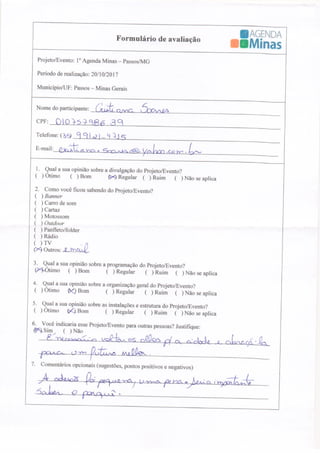 Formulário de avaliação
AGENDA
Minas
Projeto/Evento: 1º Agenda Minas – Passos/MG
Período de realização: 20/10/2017
Município/UF: Passos – Minas Gerais
Nome do participante: Soares
CPF:
Telefone: (35)
E-mail:
1. Qual a sua opinião sobre a divulgação do Projeto/Evento?
( ) Ótimo ( ) Bom (X) Regular ( ) Ruim ( ) Não se aplica
2. Como você ficou sabendo do Projeto/Evento?
( ) Banner
( ) Carro de som
( ) Cartaz
( ) Motossom
( ) Outdoor
( ) Panfleto/folder
( ) Rádio
( ) TV
(X) Outros: email
3. Qual a sua opinião sobre a programação do Projeto/Evento?
(X) Ótimo ( ) Bom ( ) Regular ( ) Ruim ( ) Não se aplica
4. Qual a sua opinião sobre a organização geral do Projeto/Evento?
( ) Ótimo (X) Bom ( ) Regular ( ) Ruim ( ) Não se aplica
5. Qual a sua opinião sobre as instalações e estrutura do Projeto/Evento?
( ) Ótimo (X) Bom ( ) Regular ( ) Ruim ( ) Não se aplica
6. Você indicaria esse Projeto/Evento para outras pessoas? Justifique:
(X) Sim ( ) Não
É necessário voltar os olhos p/ a cidade e
para um futuro melhor
7. Comentários opcionais (sugestões, pontos positivos e negativos)
A adesão foi pequena, uma pena. Seria importante
saber o porquê.